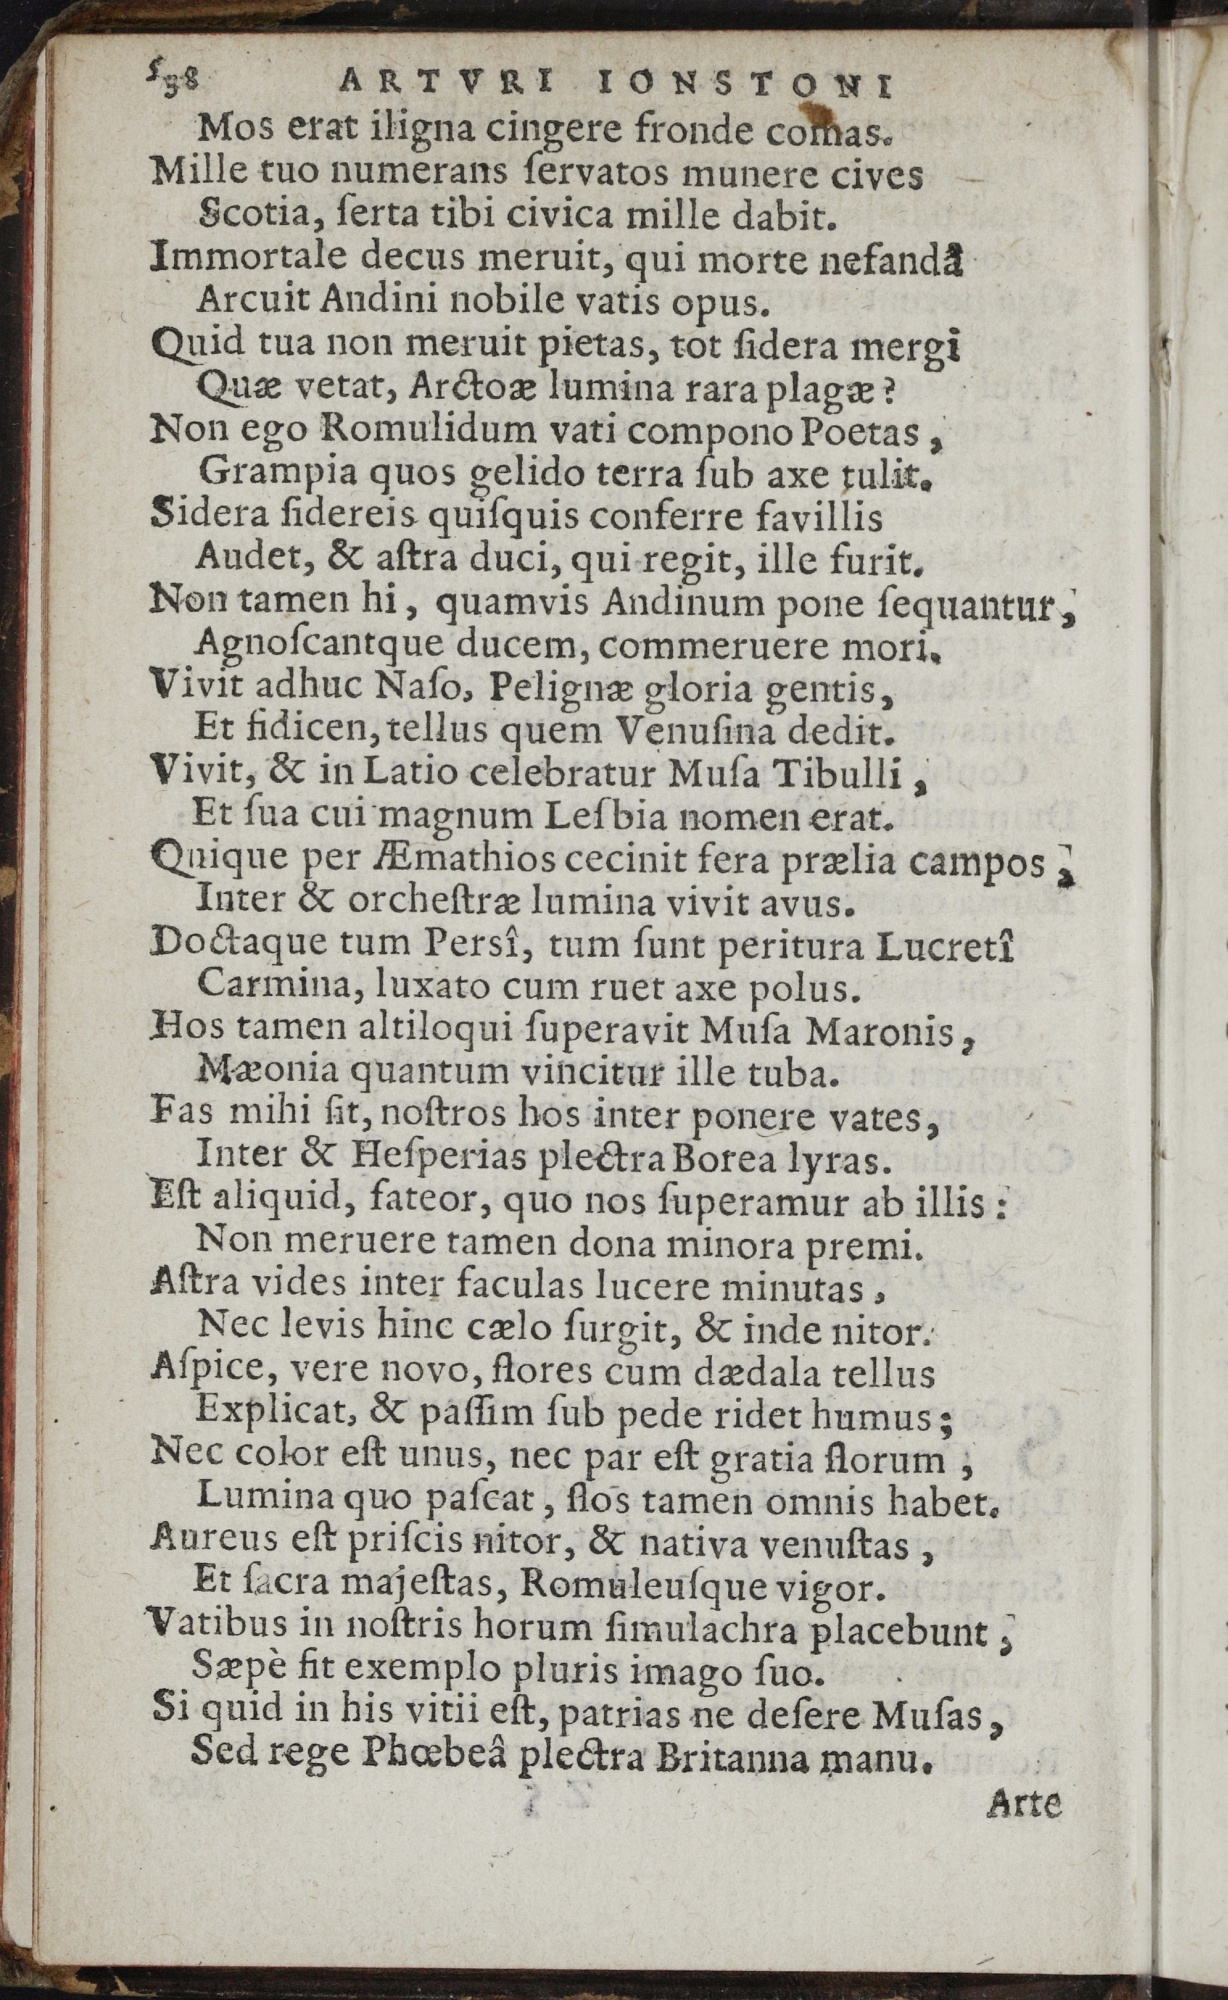 598 ARTVRI IONSTONI
Mos erat iligna cingere fronde comas.
Mille tuo numerans ſervatos munere cives
Scotia, ſerta tibi civica mille dabit.
Immortale decus meruit, qui morte nefandâ
Arcuit Andini nobile vatis opus.
Quid tua non meruit pietas, tot ſidera mergi
Quæ vetat, Arctoæ lumina rara plagæ?
Non ego Romulidum vati compono Poetas,
Grampia quos gelido terra ſub axe tulit.
Sidera ſidereis quiſquis conferre favillis
Audet, & aſtra duci, qui regit, ille furit.
Non tamen hi, quamvis Andinum pone ſequantur,
Agnoſcantque ducem, commeruere mori.
Vivit adhuc Naſo, Pelignæ gloria gentis,
Et fidicen, tellus quem Venuſina dedit.
Vivit, & in Latio celebratur Muſa Tibulli,
Et ſua cui magnum Leſbia nomen erat.
Quique per Æmathios cecinit fera prælia campos,
Inter & orcheſtræ lumina vivit avus.
Doctaque tum Persî, tum ſunt peritura Lucretî
Carmina, luxato cum ruet axe polus.
Hos tamen altiloqui ſuperavit Muſa Maronis,
Mæonia quantum vincitur ille tuba.
Fas mihi ſit, noſtros hos inter ponere vates,
Inter & Heſperias plectra Borea lyras.
Eſt aliquid, fateor, quo nos ſuperamur ab illis:
Non meruere tamen dona minora premi.
Aſtra vides inter faculas lucere minutas,
Nec levis hinc cælo ſurgit, & inde nitor.
Aſpice, vere novo, flores cum dædala tellus
Explicat, & paſſim ſub pede ridet humus;
Nec color eſt unus, nec par eſt gratia florum,
Lumina quo paſcat, flos tamen omnis habet.
Aureus eſt priſcis nitor, & nativa venuſtas,
Et ſacra majeſtas, Romuleuſque vigor.
Vatibus in noſtris horum ſimulachra placebunt;
Sæpè fit exemplo pluris imago ſuo.
Si quid in his vitii eſt, patrias ne deſere Muſas,
Sed rege Phœbeâ plectra Britanna manu.
Arte